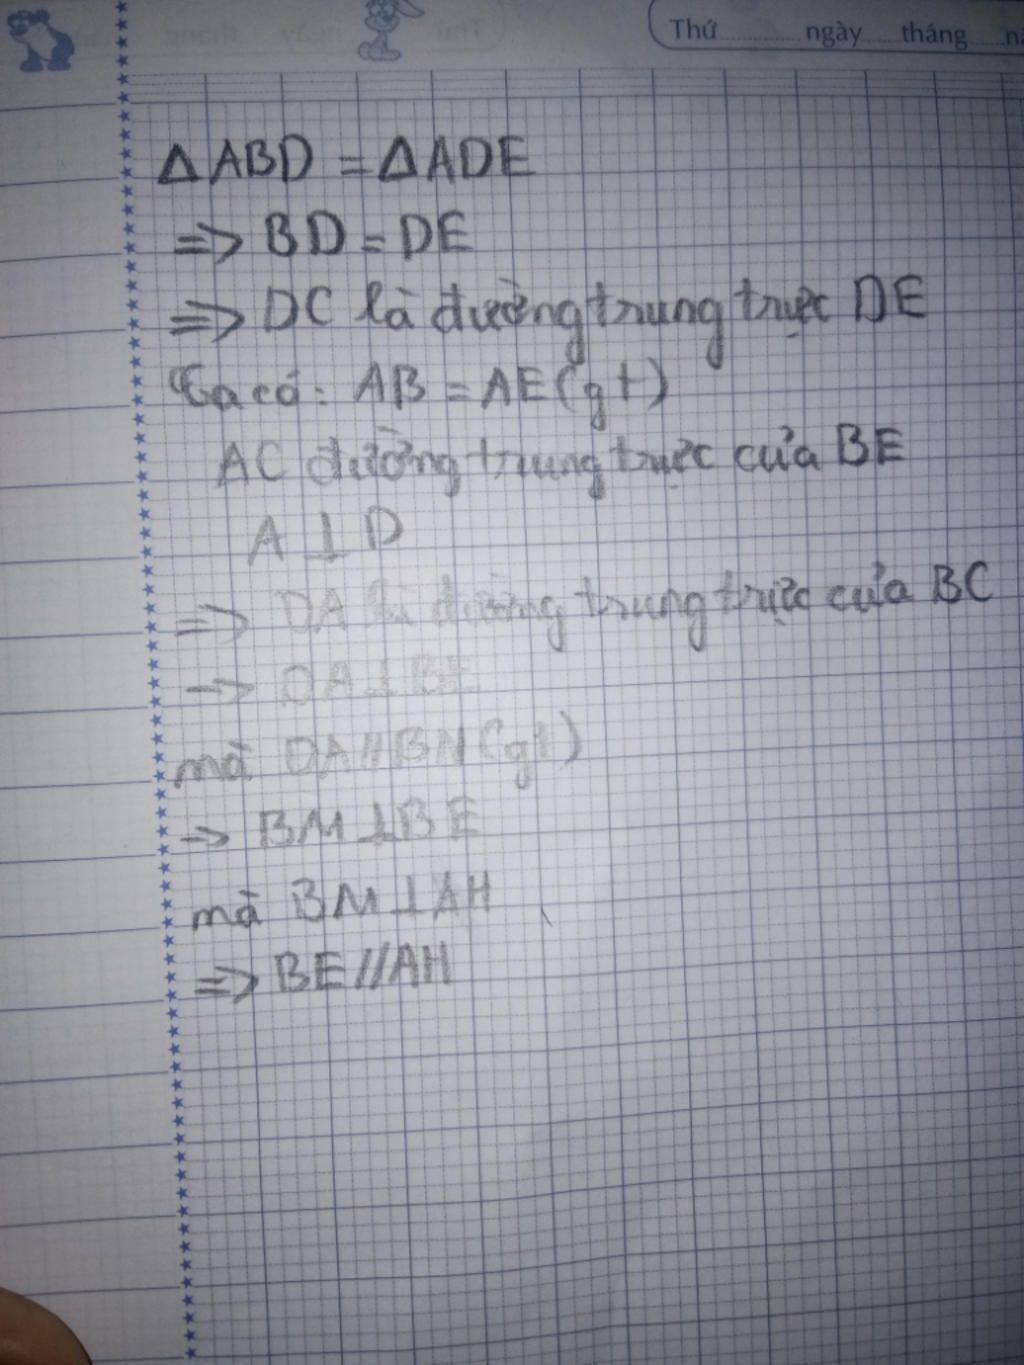 Thứ ngày tháng
ΔABD = ΔADE
=> BD = DE
=> DC là đường trung trực DE
Ta có: AB = AE (gt)
AC đường trung trực của BE
A ⊥ D
=> DA là đường trung trực của BC
-> DA ⊥ BE
mà DA // BN (gt)
-> BM ⊥ BE
mà BM ⊥ AH
=> BE // AH